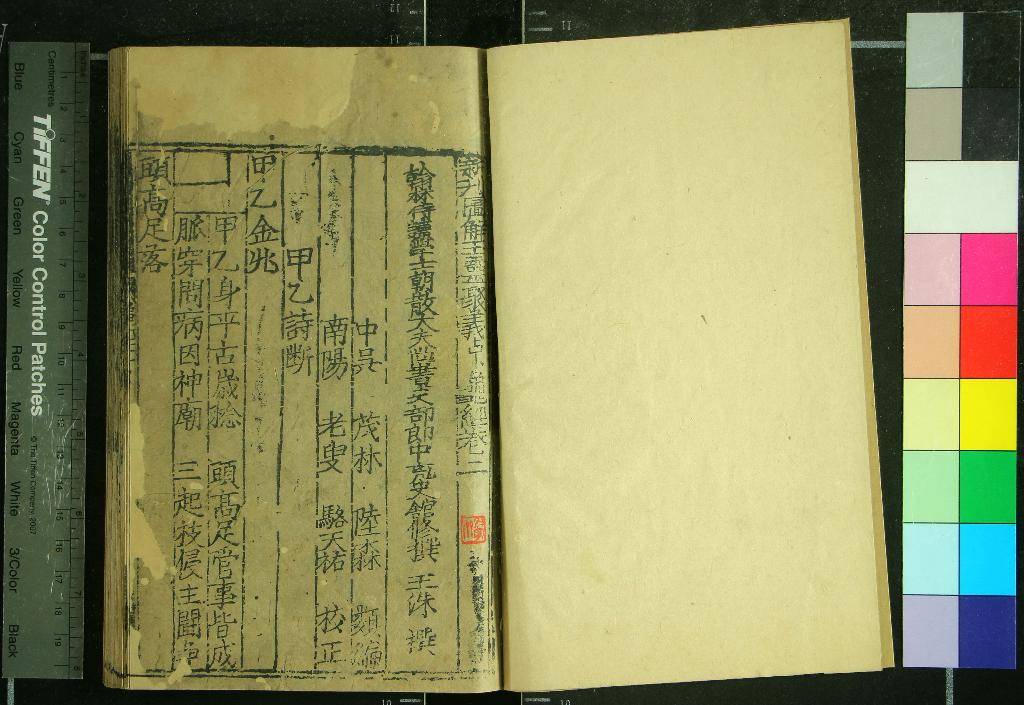 新刊圖解玉靈聚義占卜龜經卷之二
翰林侍講學士朝散大夫尚書吏部郎中充史館修撰 王洙 撰
中吳 茂林 陸森 類編
南陽 老叟 駱天祐 校正
甲乙詩斷
甲乙金兆
甲乙身平古歲稔 頭高足官事皆成
脈穿問病因神廟 三起枝侵主鬪
頭高足落
TIFFEN Color Control Patches
© The Tiffen Company, 2007
Centimetres
Blue Cyan Green Yellow Red Magenta White 3/Color Black